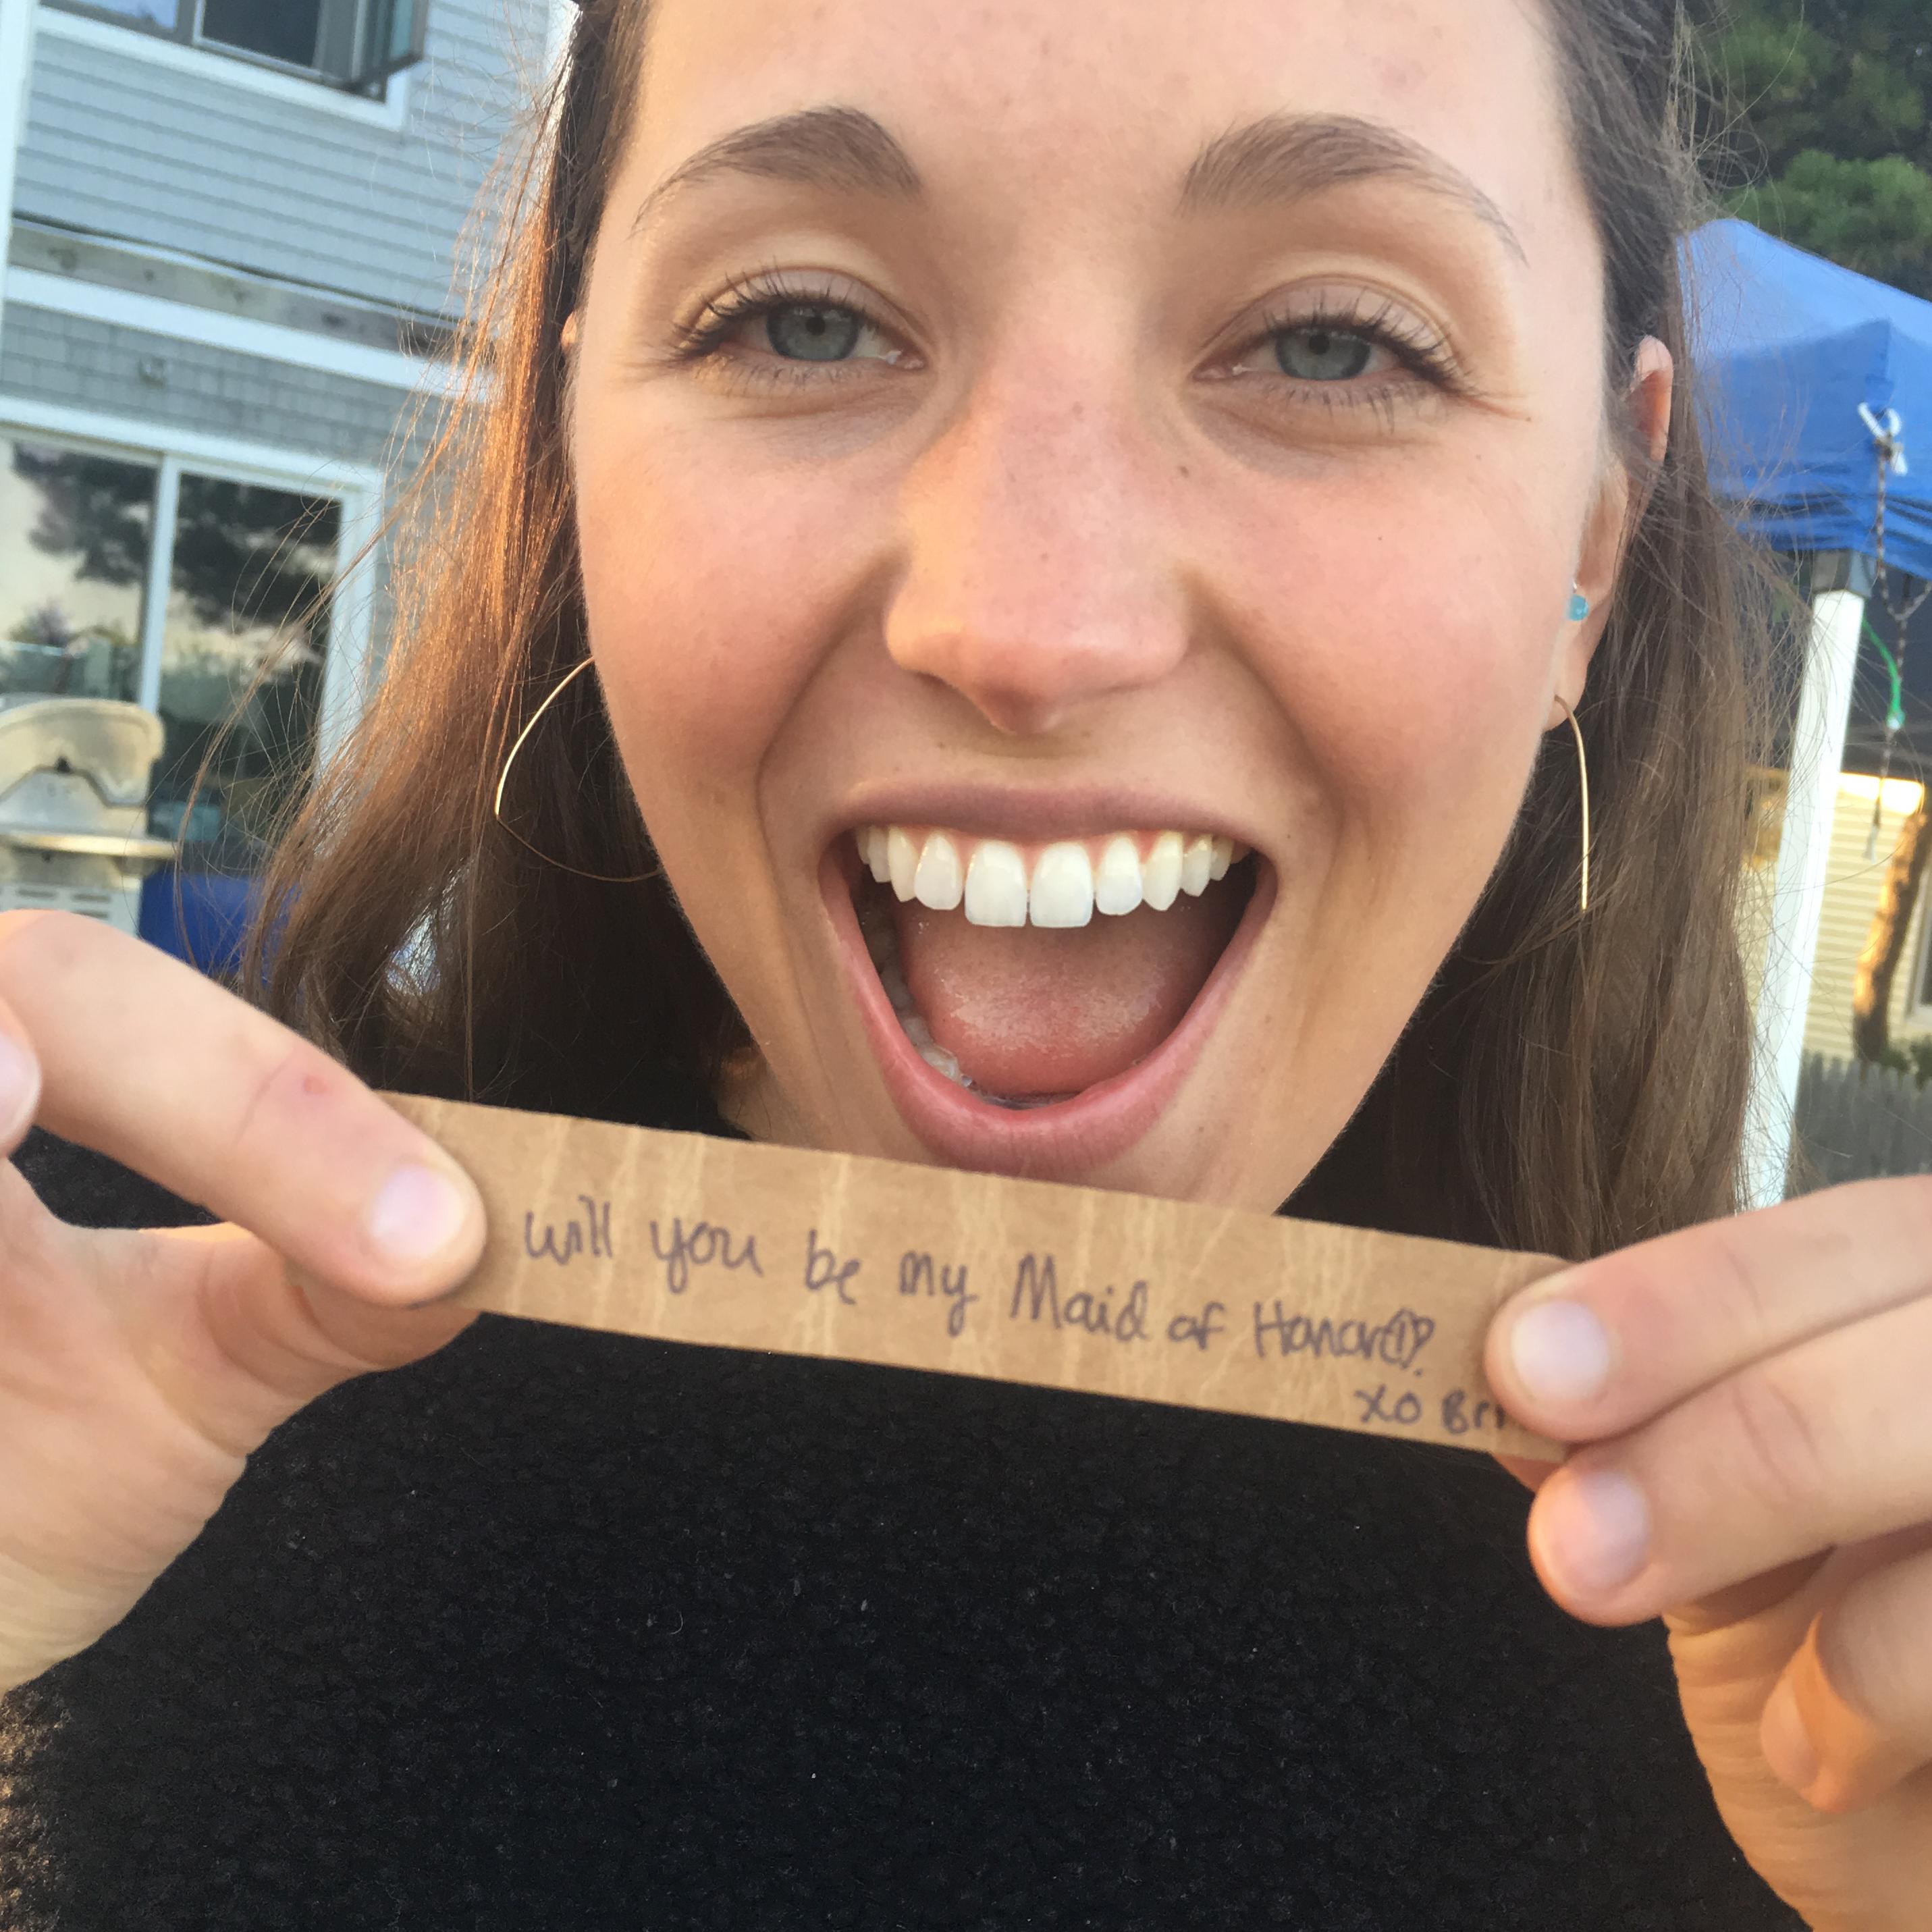 will you be my Maid of Honor?
xo Bri